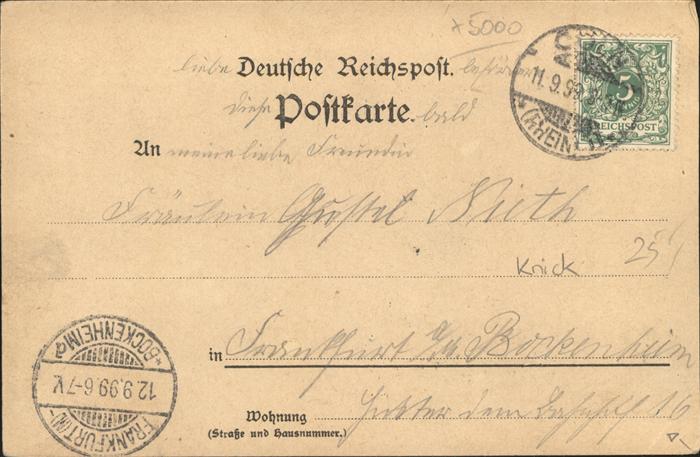 x5000
liebe Deutsche Reichspost. befördere
diese Postkarte. bald
An meine liebe Freundin
Fräulein Gustel Nieth
Knick 25
in Frankfurt a/M. Bockenheim
Wohnung Hinter dem Bahnhof 16
(Straße und Hausnummer.)
11.9.99
(RHEIN)
5
REICHSPOST
*BOCKENHEIM*
12.9.99.6-7V.
FRANKFURT(M)-